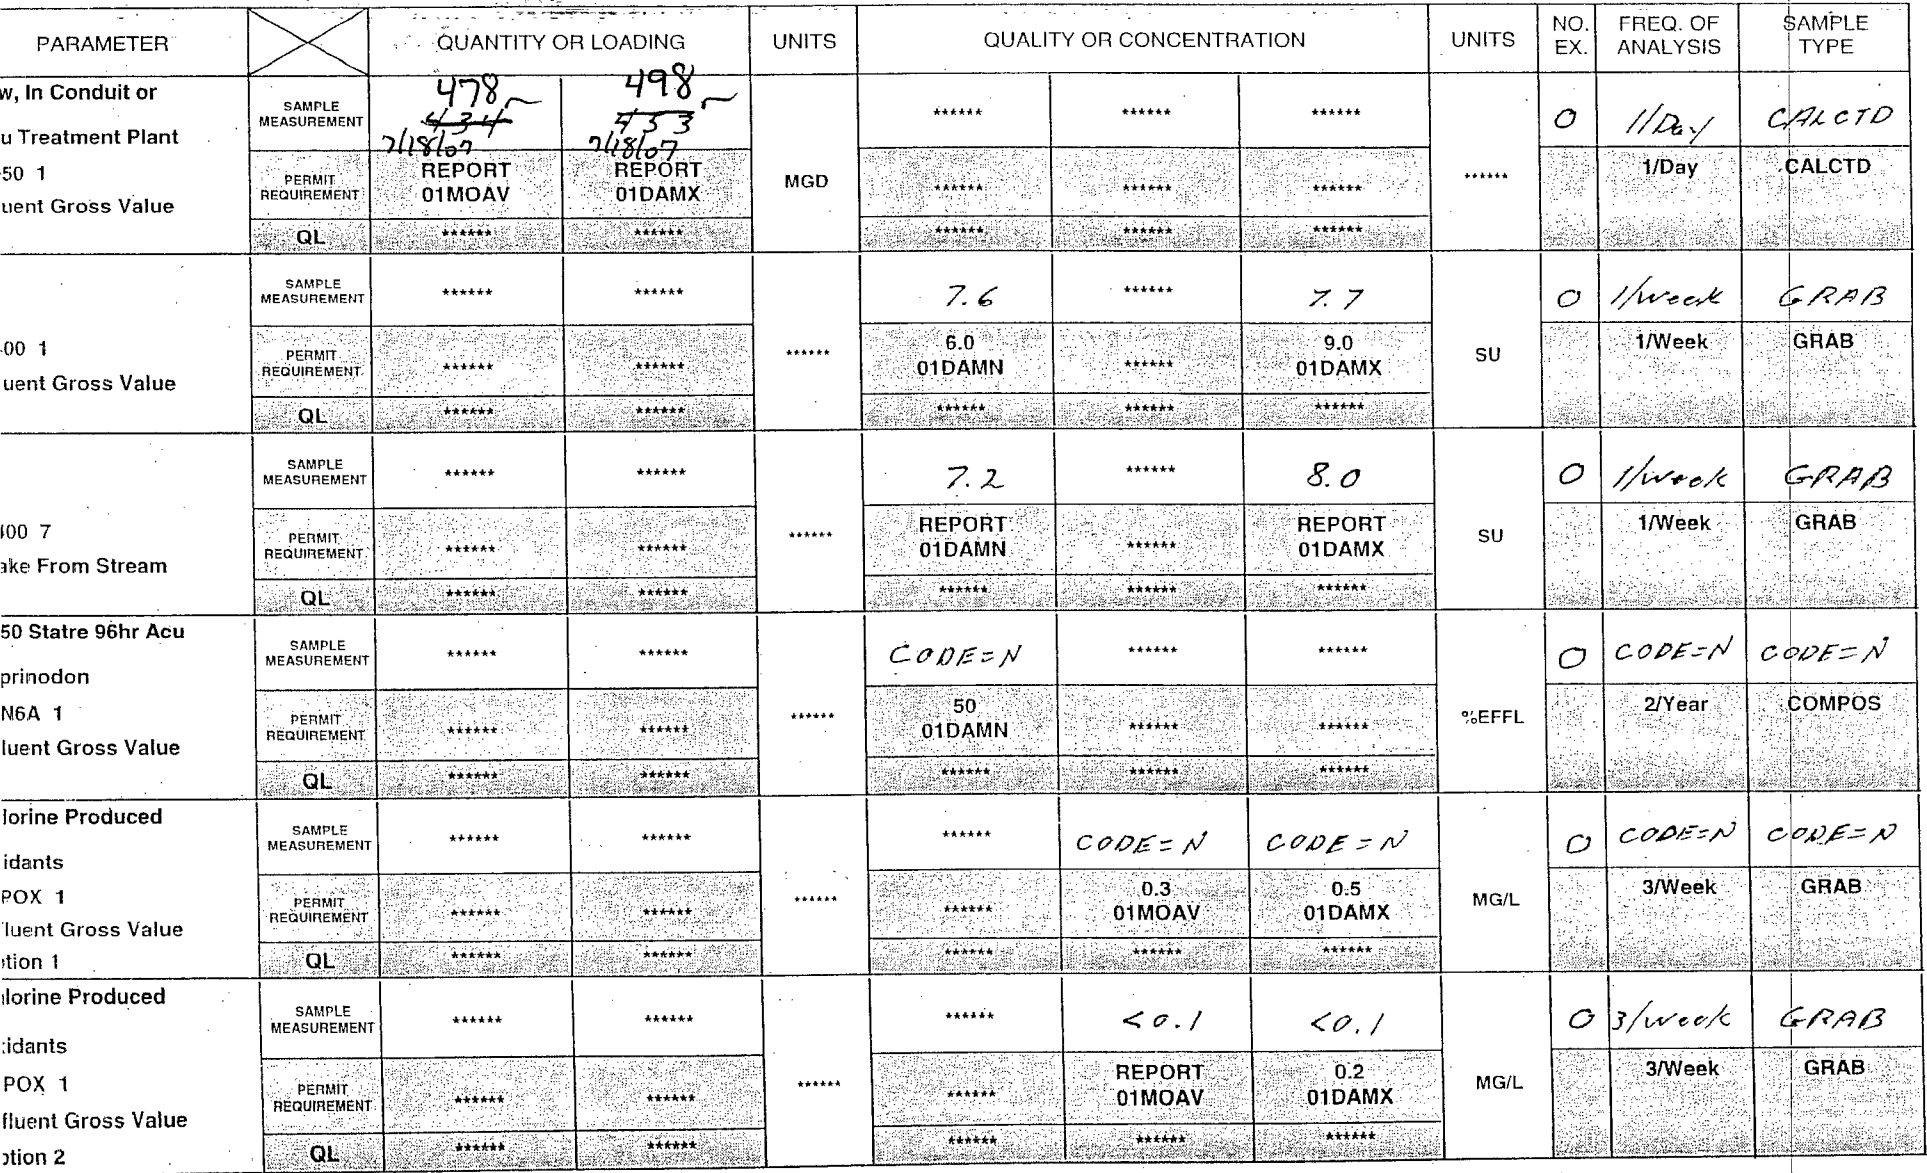 PARAMETER
QUANTITY OR LOADING
UNITS
QUALITY OR CONCENTRATION
UNITS
NO. EX.
FREQ. OF ANALYSIS
SAMPLE TYPE
w, In Conduit or
u Treatment Plant
50 1
uent Gross Value
SAMPLE MEASUREMENT
478
434
7/18/07
498
453
7/18/07
MGD
******
******
******
******
0
1/Day
CALCTD
PERMIT REQUIREMENT
REPORT 01MOAV
REPORT 01DAMX
******
******
******
1/Day
CALCTD
QL
******
******
******
******
******
00 1
uent Gross Value
SAMPLE MEASUREMENT
******
******
******
7.6
******
7.7
SU
0
1/week
GRAB
PERMIT REQUIREMENT
******
******
6.0 01DAMN
******
9.0 01DAMX
1/Week
GRAB
QL
******
******
******
******
******
400 7
ake From Stream
SAMPLE MEASUREMENT
******
******
******
7.2
******
8.0
SU
0
1/week
GRAB
PERMIT REQUIREMENT
******
******
REPORT 01DAMN
******
REPORT 01DAMX
1/Week
GRAB
QL
******
******
******
******
******
50 Statre 96hr Acu
prinodon
N6A 1
luent Gross Value
SAMPLE MEASUREMENT
******
******
******
CODE=N
******
******
%EFFL
0
CODE=N
CODE=N
PERMIT REQUIREMENT
******
******
50 01DAMN
******
******
2/Year
COMPOS
QL
******
******
******
******
******
lorine Produced
idants
POX 1
luent Gross Value
tion 1
SAMPLE MEASUREMENT
******
******
******
******
CODE=N
CODE=N
MG/L
0
CODE=N
CODE=N
PERMIT REQUIREMENT
******
******
******
0.3 01MOAV
0.5 01DAMX
3/Week
GRAB
QL
******
******
******
******
******
lorine Produced
idants
POX 1
fluent Gross Value
otion 2
SAMPLE MEASUREMENT
******
******
******
******
<0.1
<0.1
MG/L
0
3/week
GRAB
PERMIT REQUIREMENT
******
******
******
REPORT 01MOAV
0.2 01DAMX
3/Week
GRAB
QL
******
******
******
******
******